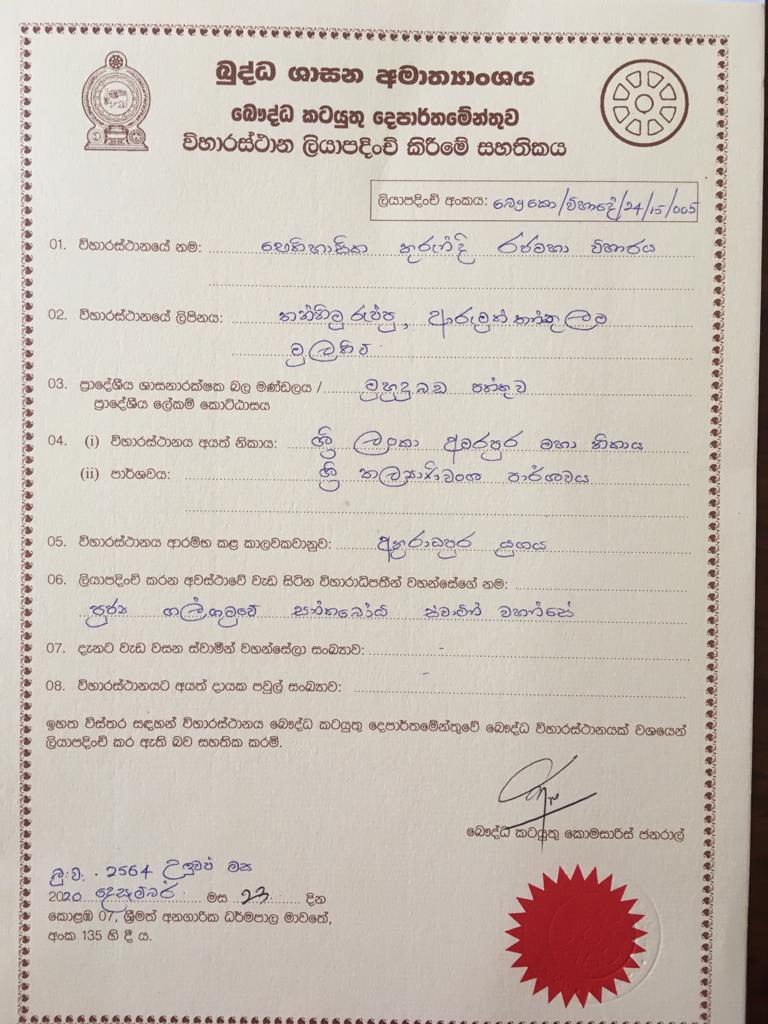 බුද්ධ ශාසන අමාත්‍යාංශය
බෞද්ධ කටයුතු දෙපාර්තමේන්තුව
විහාරස්ථාන ලියාපදිංචි කිරීමේ සහතිකය
ලියාපදිංචි අංකය: බෞකො/විහාදේ/24/15/005
01. විහාරස්ථානයේ නම: ඓතිහාසික කුරුන්දි රජමහා විහාරය
02. විහාරස්ථානයේ ලිපිනය: තන්නිමුරුප්පු, ආරුමුත්තන්කුලම
මුලතිව්
03. ප්‍රාදේශීය ශාසනාරක්ෂක බල මණ්ඩලය / මුහුදුබඩ පත්තුව
ප්‍රාදේශීය ලේකම් කොට්ඨාසය
04. (i) විහාරස්ථානය අයත් නිකාය: ශ්‍රී ලංකා අමරපුර මහා නිකාය
(ii) පාර්ශවය: ශ්‍රී කල්‍යාණිවංශ පාර්ශවය
05. විහාරස්ථානය ආරම්භ කළ කාලවකවානුව: අනුරාධපුර යුගය
06. ලියාපදිංචි කරන අවස්ථාවේ වැඩ සිටින විහාරාධිපතීන් වහන්සේගේ නම:
පූජ්‍ය ගල්ගමුවේ ශාන්තබෝධි ස්වාමීන් වහන්සේ
07. දැනට වැඩ වසන ස්වාමීන් වහන්සේලා සංඛ්‍යාව: -
08. විහාරස්ථානයට අයත් දායක පවුල් සංඛ්‍යාව: -
ඉහත විස්තර සඳහන් විහාරස්ථානය බෞද්ධ කටයුතු දෙපාර්තමේන්තුවේ බෞද්ධ විහාරස්ථානයක් වශයෙන්
ලියාපදිංචි කර ඇති බව සහතික කරමි.
බෞද්ධ කටයුතු කොමසාරිස් ජනරාල්
බු.ව. 2564 උඳුවප් මස
2020 දෙසැම්බර් මස 23 දින
කොළඹ 07, ශ්‍රීමත් අනගාරික ධර්මපාල මාවතේ,
අංක 135 හි දී ය.